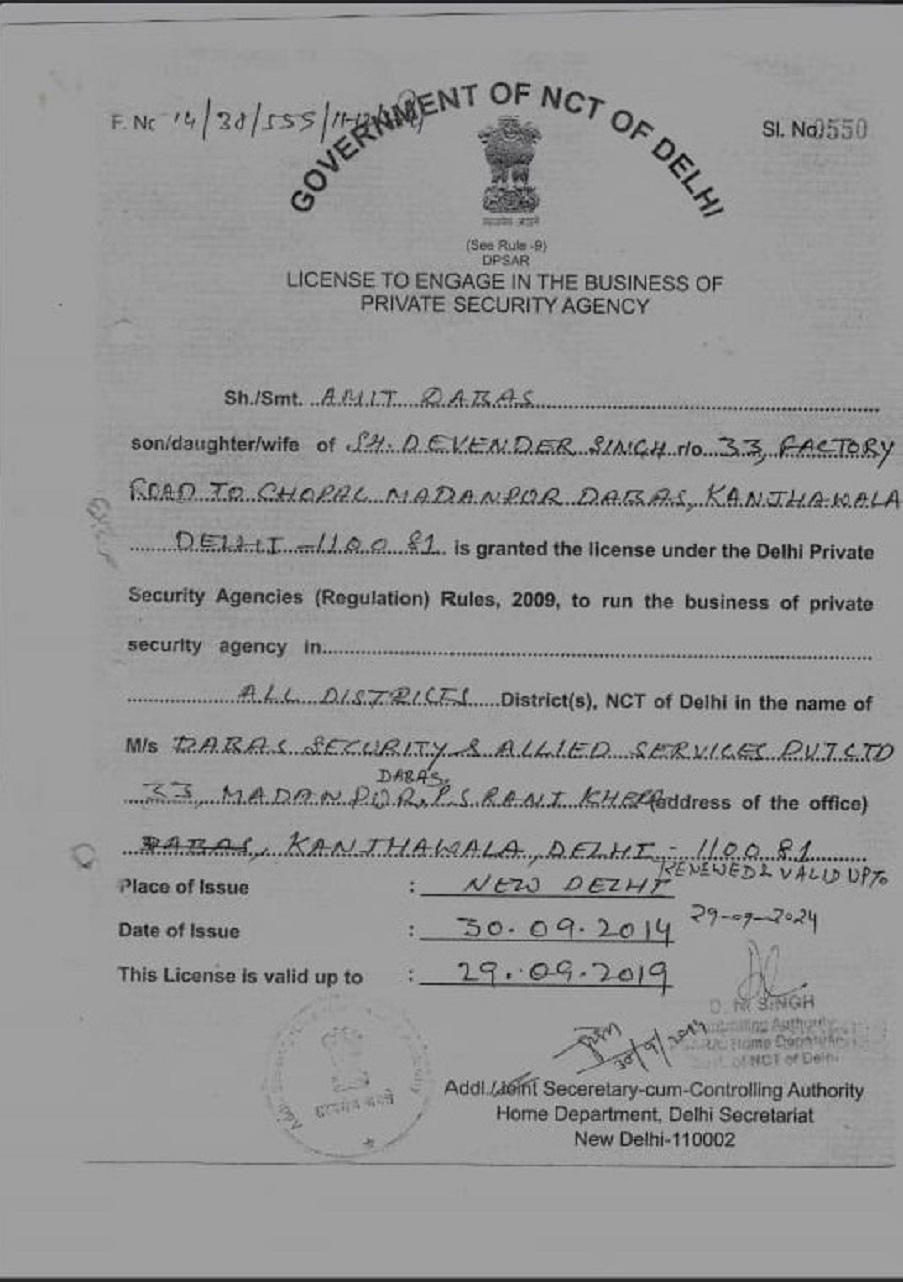 F. No 14/38/555/
Sl. No 0550
GOVERNMENT OF NCT OF DELHI
सत्यमेव जयते
(See Rule -9)
DPSAR
LICENSE TO ENGAGE IN THE BUSINESS OF
PRIVATE SECURITY AGENCY
Sh./Smt. AMIT DABAS
son/daughter/wife of SH. DEVENDER SINGH r/o 33, FACTORY
ROAD TO CHOPAL MADANPOR DABAS, KANJHAWALA
DELHI -110081 is granted the license under the Delhi Private
Security Agencies (Regulation) Rules, 2009, to run the business of private
security agency in
ALL DISTRICTS District(s), NCT of Delhi in the name of
M/s DABAS SECURITY & ALLIED SERVICES PVT LTD
DABAS,
33, MADANPOR, P.S RANI KHERA (address of the office)
DABAS, KANJHAWALA, DELHI - 110081
RENEWED & VALID UPTO
Place of Issue : NEW DELHI
29-09-2024
Date of Issue : 30.09.2014
This License is valid up to : 29.09.2019
SINGH
Controlling Authority
Home Department
of NCT of Delhi
30/9/2014
सत्यमेव जयते
Addl./Joint Seceretary-cum-Controlling Authority
Home Department, Delhi Secretariat
New Delhi-110002